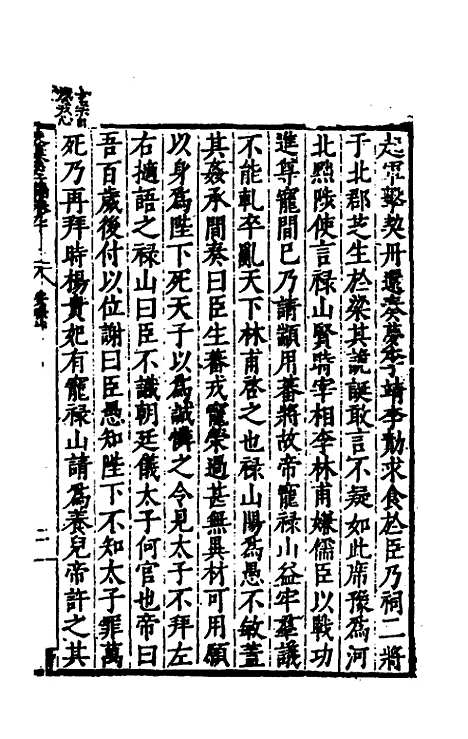 起軍擊契丹還奏夢李靖李勣求食於臣乃祠二將
于北郡芝生於梁其詭誕敢言不疑如此席豫爲河
北黜陟使言祿山賢時宰相李林甫嫌儒臣以戰功
進尊寵間已乃請顓用蕃將故帝寵祿山益牢群議
不能軋卒亂天下林甫啓之也祿山陽爲愚不敏蓋
其姦承間奏曰臣生蕃戎寵榮過甚無異材可用願
以身爲陛下死天子以爲誠憐之令見太子不拜左
右擿語之祿山曰臣不識朝廷儀太子何官也帝曰
吾百歲後付以位謝曰臣愚知陛下不知太子罪萬
死乃再拜時楊貴妃有寵祿山請爲養兒帝許之其
二